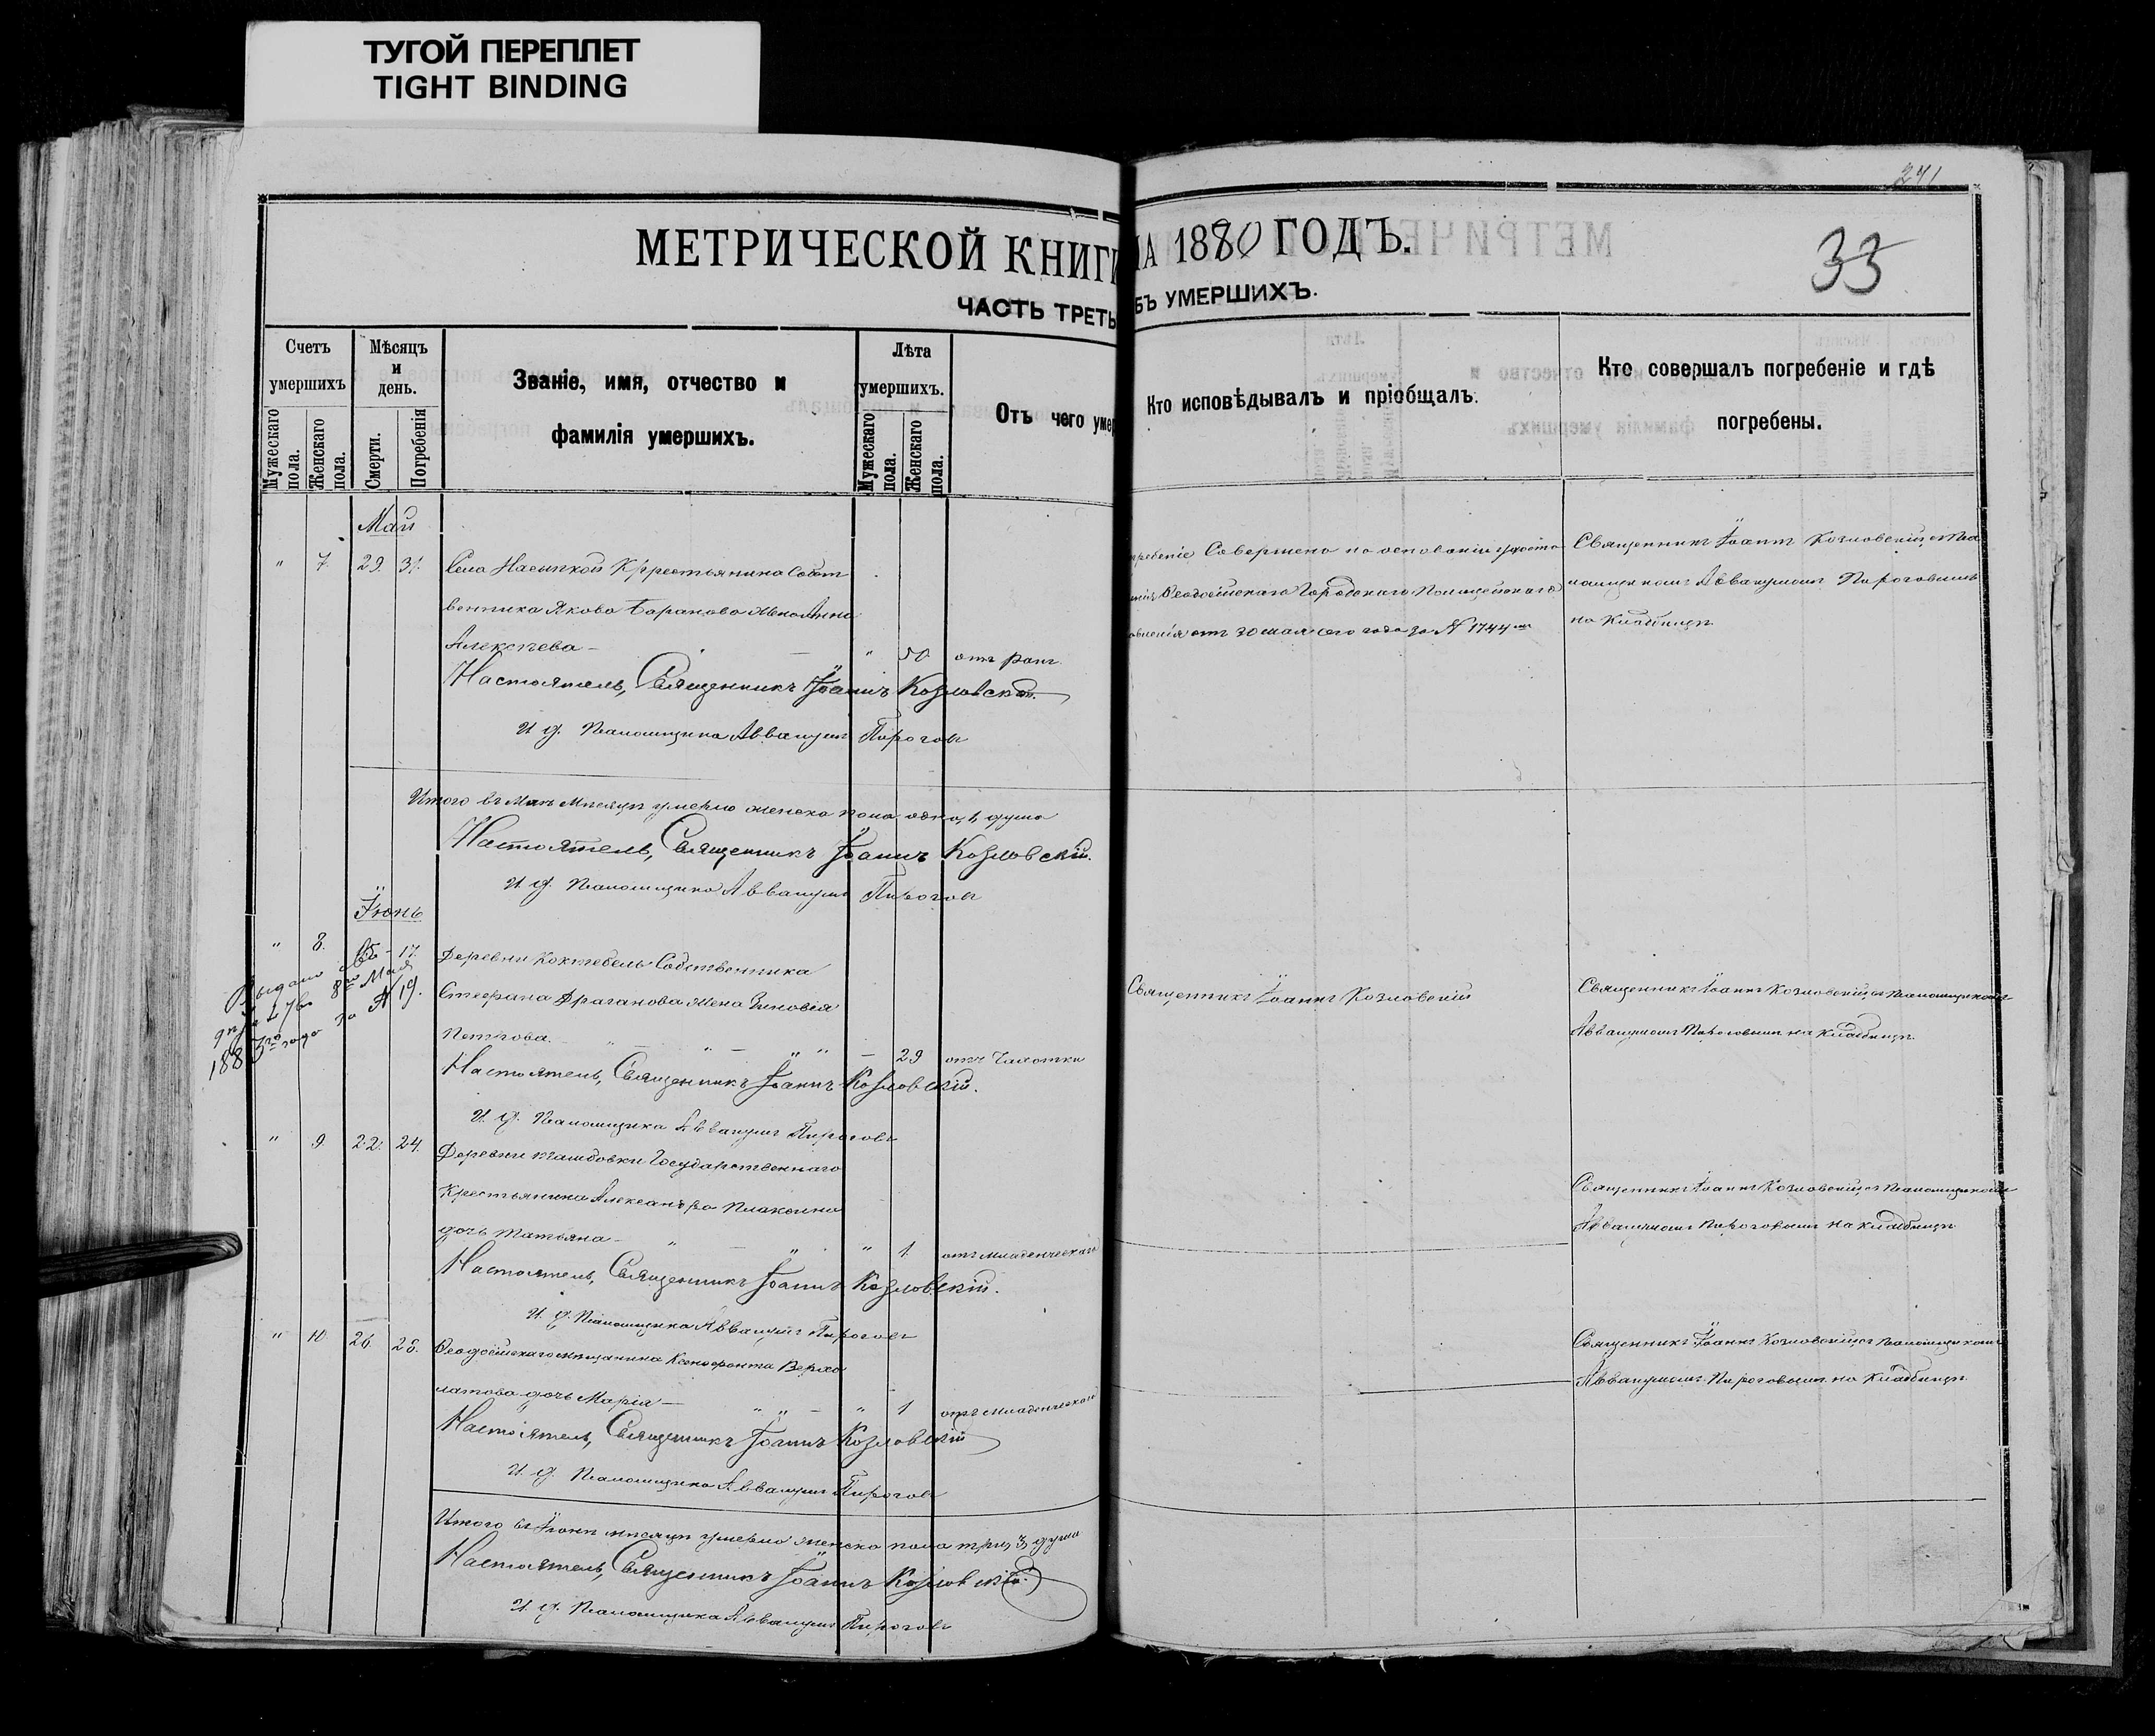 ТУГОЙ ПЕРЕПЛЕТ
TIGHT BINDING
241
33
МЕТРИЧЕСКОЙ КНИГИ НА 1880 ГОДЪ.
ЧАСТЬ ТРЕТЬ БЪ УМЕРШИХЪ.
Счетъ умершихъ
Мужескаго пола.
Женскаго пола.
Мѣсяцъ и день.
Смерти.
Погребенія
Званіе, имя, отчество и
фамилія умершихъ.
Лѣта умершихъ.
Мужескаго пола.
Женскаго пола.
Отъ чего умер
Кто исповѣдывалъ и пріобщалъ.
Кто совершалъ погребеніе и гдѣ
погребены.
Май
" 7. 29. 31. Села Насыпкой Крестьянина Собст
венника Якова Баранова жена Анна
Алексѣева — " 50 отъ ранъ
ребеніе Совершено на основаніи
Ѳеодосійскаго Городскаго Полицейскаго
отъ 30 мая сего года за № 1744
Священникъ Іоаннъ Козловскій съ Пса
ломщикомъ Аввакумомъ Пироговымъ
на Кладбищѣ
Настоятель, Священникъ Іоаннъ Козловскій.
И. д. Псаломщика Аввакумъ Пироговъ
Итого въ Маѣ Мѣсяцѣ умерло женска пола одна, 1, душа
Настоятель, Священникъ Іоаннъ Козловскій.
И. д. Псаломщика Аввакумъ Пироговъ
Іюнь
" 8. 15 - 17. Деревни Коктебель Собственника
Стефана Драганова жена Зиновія
Петрова. — 29 отъ Чахотки
Священникъ Іоаннъ Козловскій
Священникъ Іоаннъ Козловскій съ Псаломщикомъ
Аввакумомъ Пироговымъ на Кладбищѣ
Выдано
8го Мая
1883го года за № 19.
Настоятель, Священникъ Іоаннъ Козловскій.
И. д. Псаломщика Аввакумъ Пироговъ
" 9 22. 24. Деревни Государственнаго
Крестьянина Александра Плаксина
дочь Татьяна — " 1. отъ Младенческаго
Священникъ Іоаннъ Козловскій съ Псаломщикомъ
Аввакумомъ Пироговымъ на Кладбищѣ
Настоятель, Священникъ Іоаннъ Козловскій.
И. д. Псаломщика Аввакумъ Пироговъ
" 10 26. 28. Ѳеодосійскаго мѣщанина Ксенофонта
дочь Марія — " 1 отъ Младенческой
Священникъ Іоаннъ Козловскій съ Псаломщикомъ
Аввакумомъ Пироговымъ на Кладбищѣ
Настоятель, Священникъ Іоаннъ Козловскій
И. д. Псаломщика Аввакумъ Пироговъ
Итого въ Іюнѣ мѣсяцѣ умерло женска пола три, 3, душа
Настоятель, Священникъ Іоаннъ Козловскій.
И. д. Псаломщика Аввакумъ Пироговъ